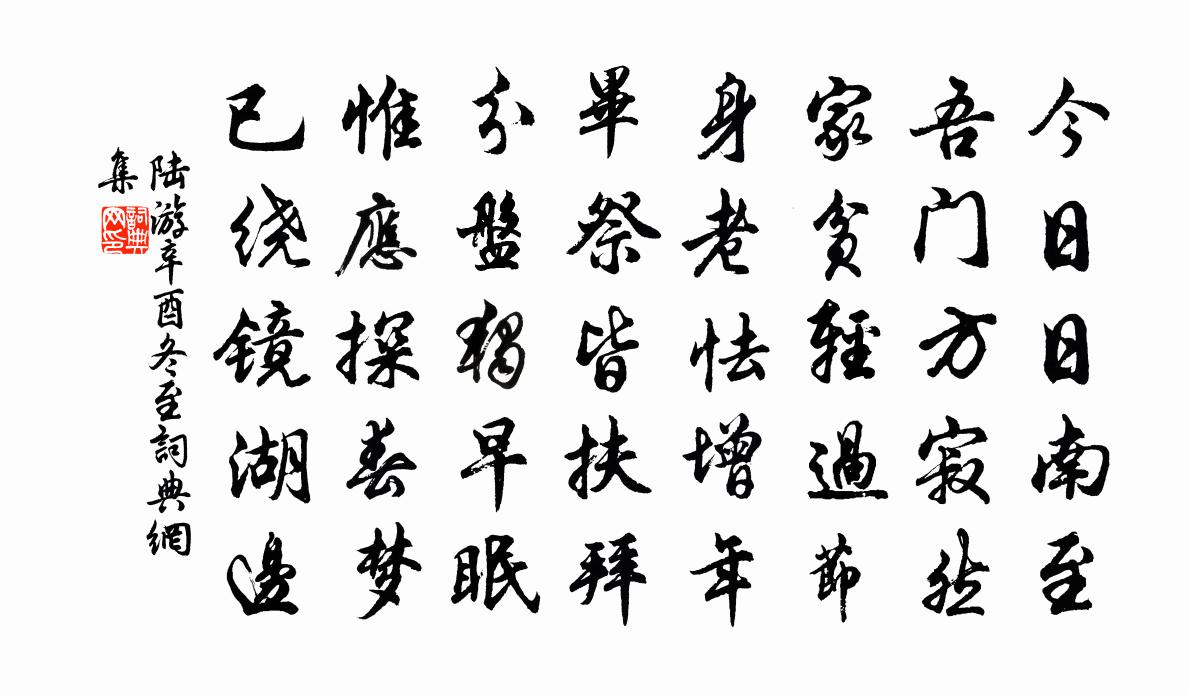 今日日南至
吾门方寂然
家貧輕過節
身老怯增年
畢祭皆扶拜
分盤獨早眠
惟應探春梦
已绕镜湖邊
陆游辛酉冬至詞典網
集
詞典网印